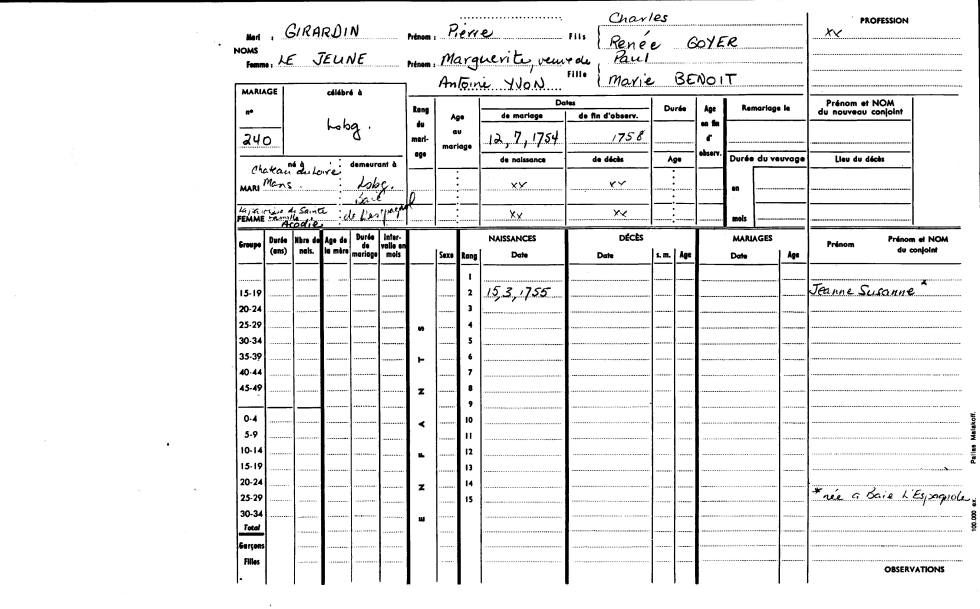 Charles
PROFESSION
Mari : GIRARDIN Prénom : Pierre Fils Renée GOYER xx
NOMS
Femme : LE JEUNE Prénom : Marguerite, veuve de Fille Paul
Antoine YVON Marie BENOIT
MARIAGE célébré à Rang du mari-age Age au mariage Dates Durée Age en fin d' observ. Remariage le Prénom et NOM du nouveau conjoint
n° de mariage de fin d'observ.
240 Lobg. 12,7,1754 1758
de naissance de décès Age Durée du veuvage Lieu du décès
né à demeurant à
Chateau du Loire
MARI Mans Lobg. xx xx en
Baie
FEMME de Sainte Famille Acadie de L'espagnol xx xx mois
Groupe Durée (ans) Nbre de nais. Age de la mère Durée de mariage Inter-valle en mois NAISSANCES DÉCÈS MARIAGES Prénom Prénom et NOM du conjoint
Sexe Rang Date Date s. m. Age Date Age
1
15-19 2 15,3,1755 Jeanne Susanne *
20-24 3
25-29 4
30-34 5
35-39 6
40-44 7
45-49 8
9
0-4 10
5-9 11
10-14 12
15-19 13
20-24 14
25-29 15 * née a Baie L'Espagnole
30-34
Total
Garçons
Filles
OBSERVATIONS
ENFANTS
100.000 ex. Malakoff.